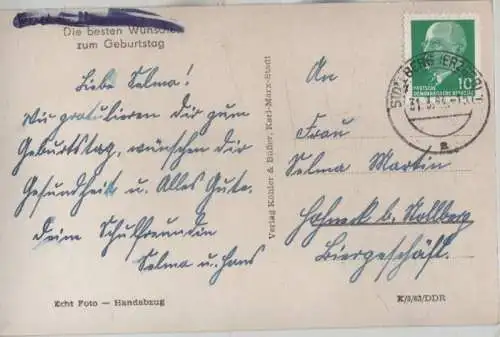 Die besten Wünsche
zum Geburtstag
Liebe Selma!
Wir gratulieren dir zum
Geburtstag, wünschen dir
Gesundheit u. Alles Gute.
Deine Schulfreundin
Selma u. Hans
Echt Foto — Handabzug
Verlag Köhler & Büffer, Karl-Marx-Stadt
An
Frau
Selma Martin
b. Stollberg
Biergeschäft.
DEUTSCHE
DEMOKRATISCHE REPUBLIK
10
STOLLBERG (ERZGEB) 1
a
K/3/63/DDR